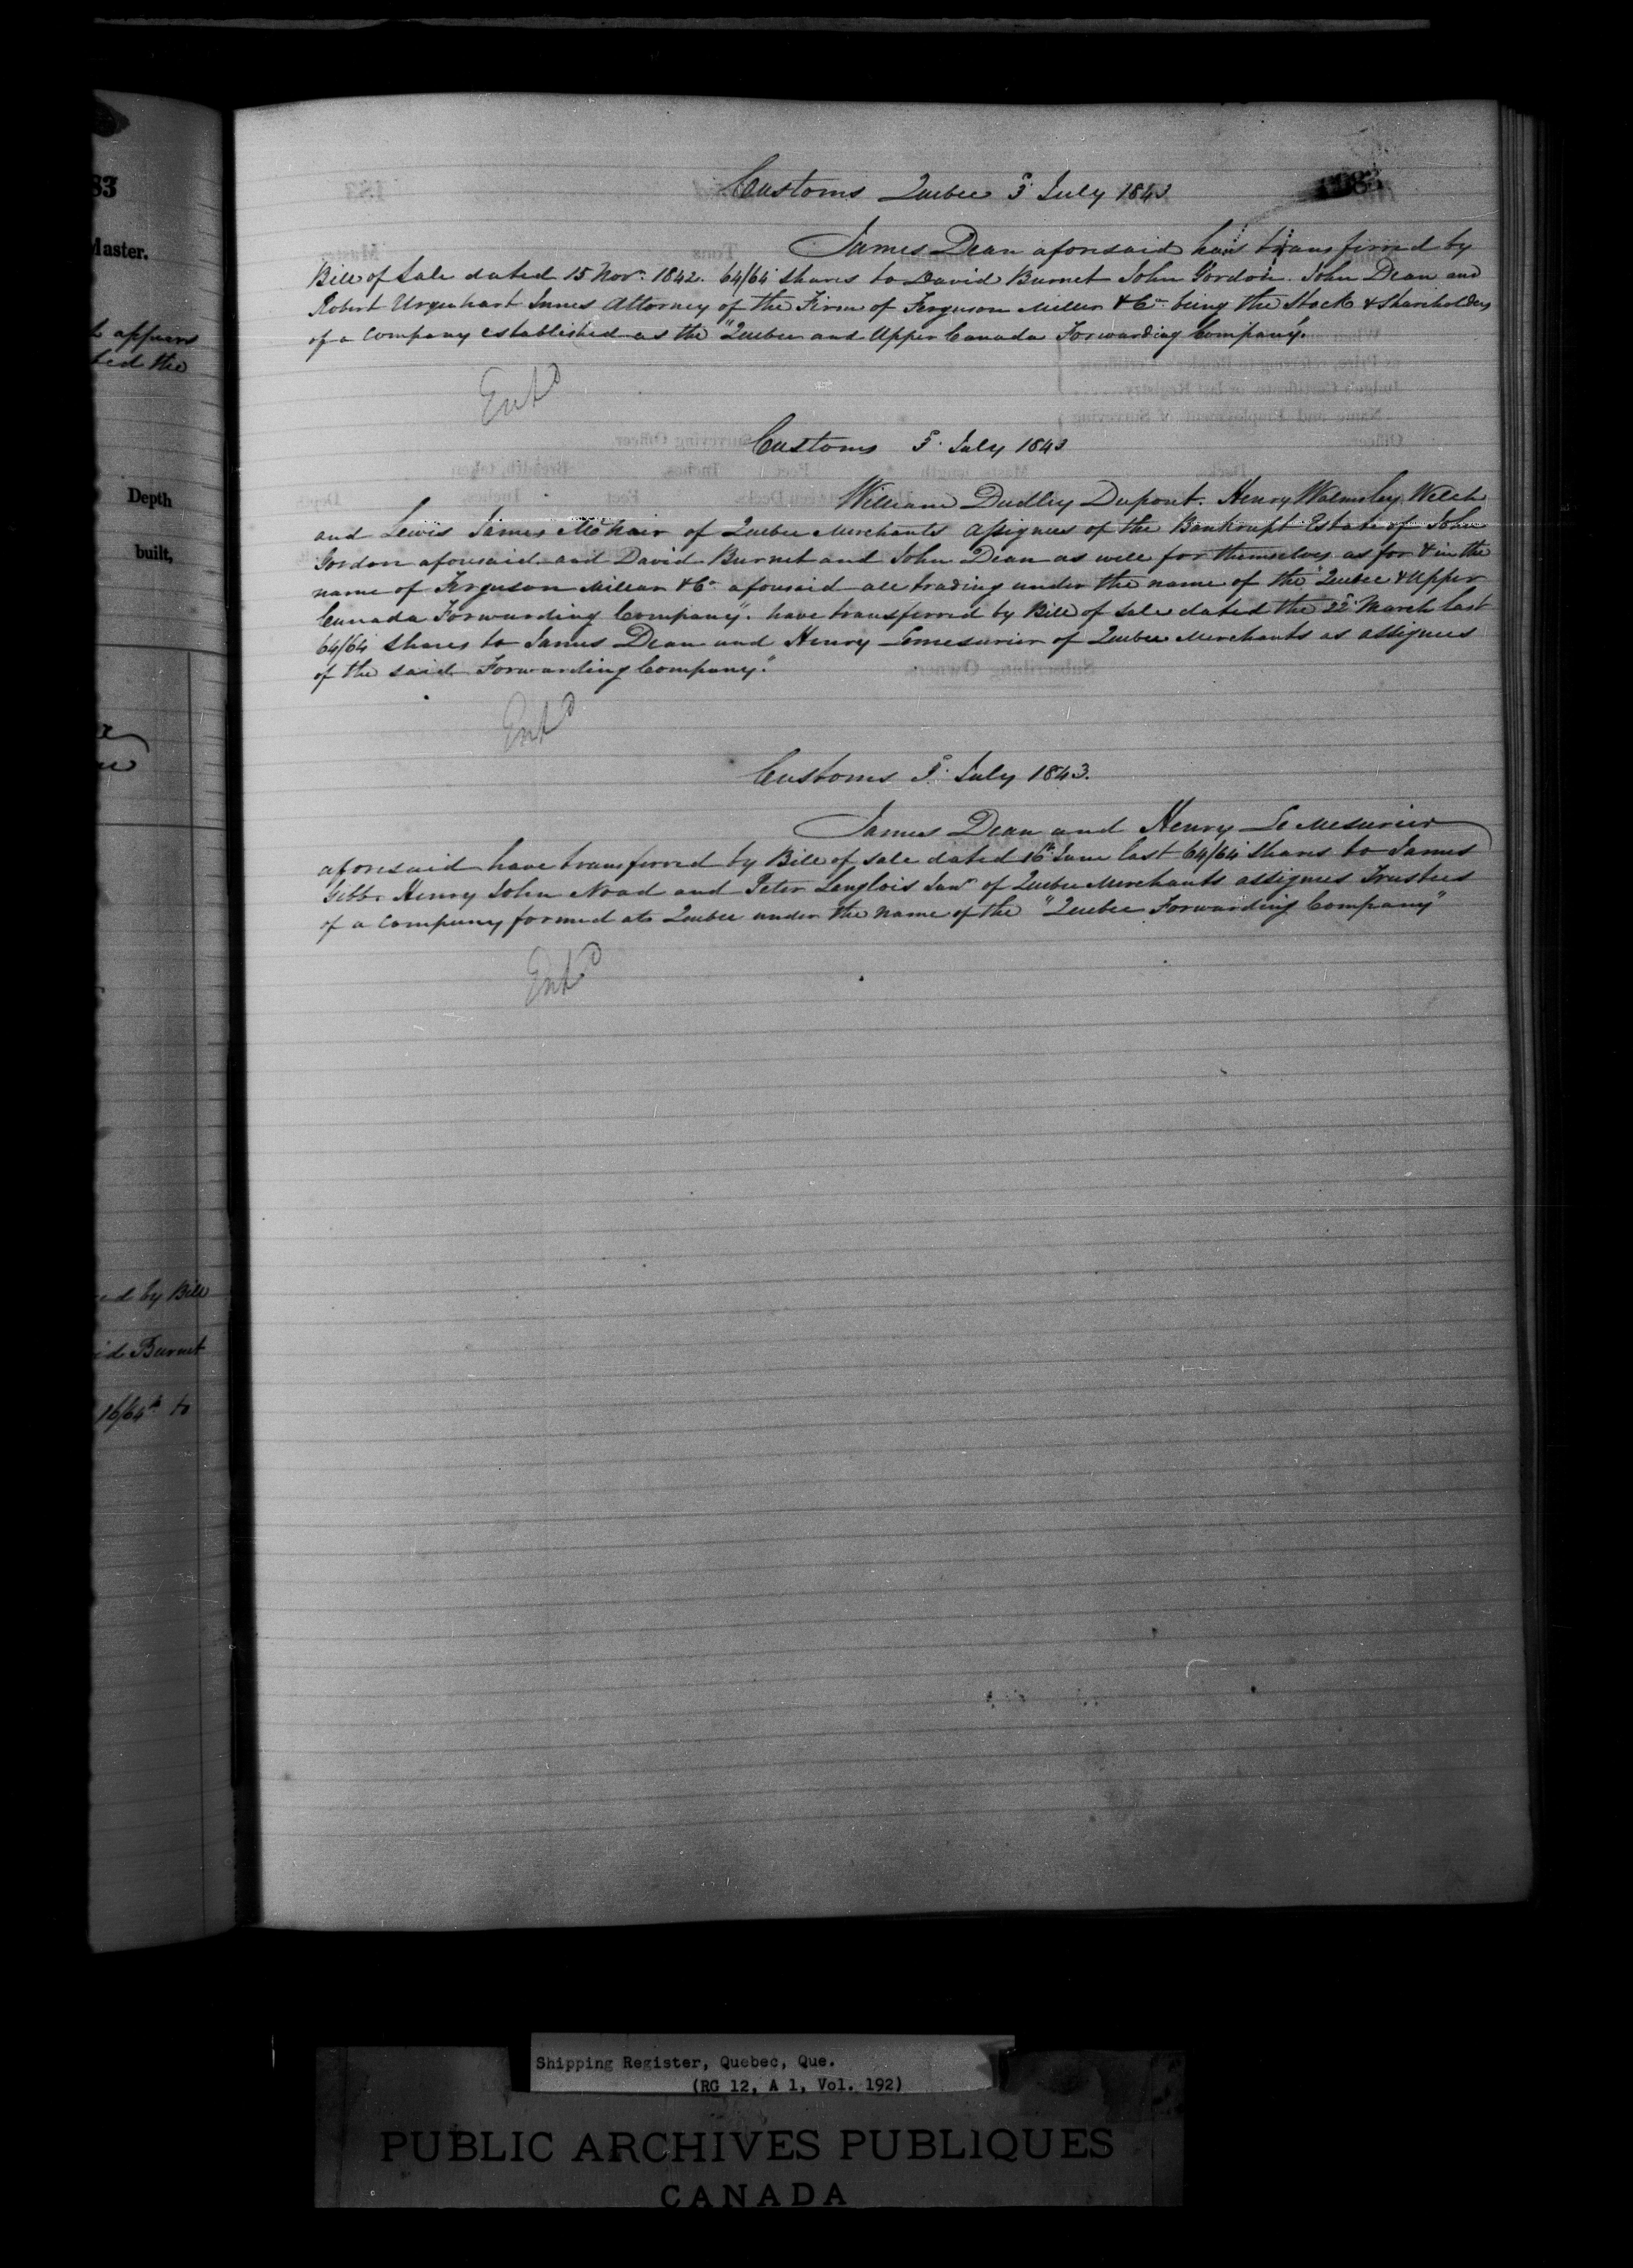 83
Master.
appears
ted the
Depth
built,
ed by Bill
id Burnet
16/64th to
Customs Quebec 5 July 1843
James Dean aforesaid has transferred by
Bill of Sale dated 15 Nov. 1842. 64/64 shares to David Burnet John Gordon John Dean and
Robert Urquhart Innes Attorney of the Firm of Ferguson Miller & Co being the Stock & Shareholders
of a Company established as the "Quebec and Upper Canada Forwarding Company.
Entd
Customs 5 July 1843
William Dudley Dupont. Henry Walmsley Welch
and Lewis James McNair of Quebec Merchants Assignees of the Bankrupt Estate of John
Gordon aforesaid and David Burnet and John Dean as well for themselves as for & in the
name of Ferguson Millar & Co aforesaid all trading under the name of the "Quebec & Upper
Canada Forwarding Company". have transferred by Bill of Sale dated the 22d March last
64/64 Shares to James Dean and Henry Lemesurier of Quebec Merchants as assignees
of the said Forwarding Company."
Entd
Customs 5 July 1843.
James Dean and Henry LeMesurier
aforesaid have transferred by Bill of Sale dated 16th June last 64/64 Shares to James
Gibb Henry John Noad and Peter Langlois Junr of Quebec Merchants assignees Trustees
of a Company formed at Quebec under the name of the "Quebec Forwarding Company"
Entd
Shipping Register, Quebec, Que.
(RG 12, A 1, Vol. 192)
PUBLIC ARCHIVES PUBLIQUES
CANADA